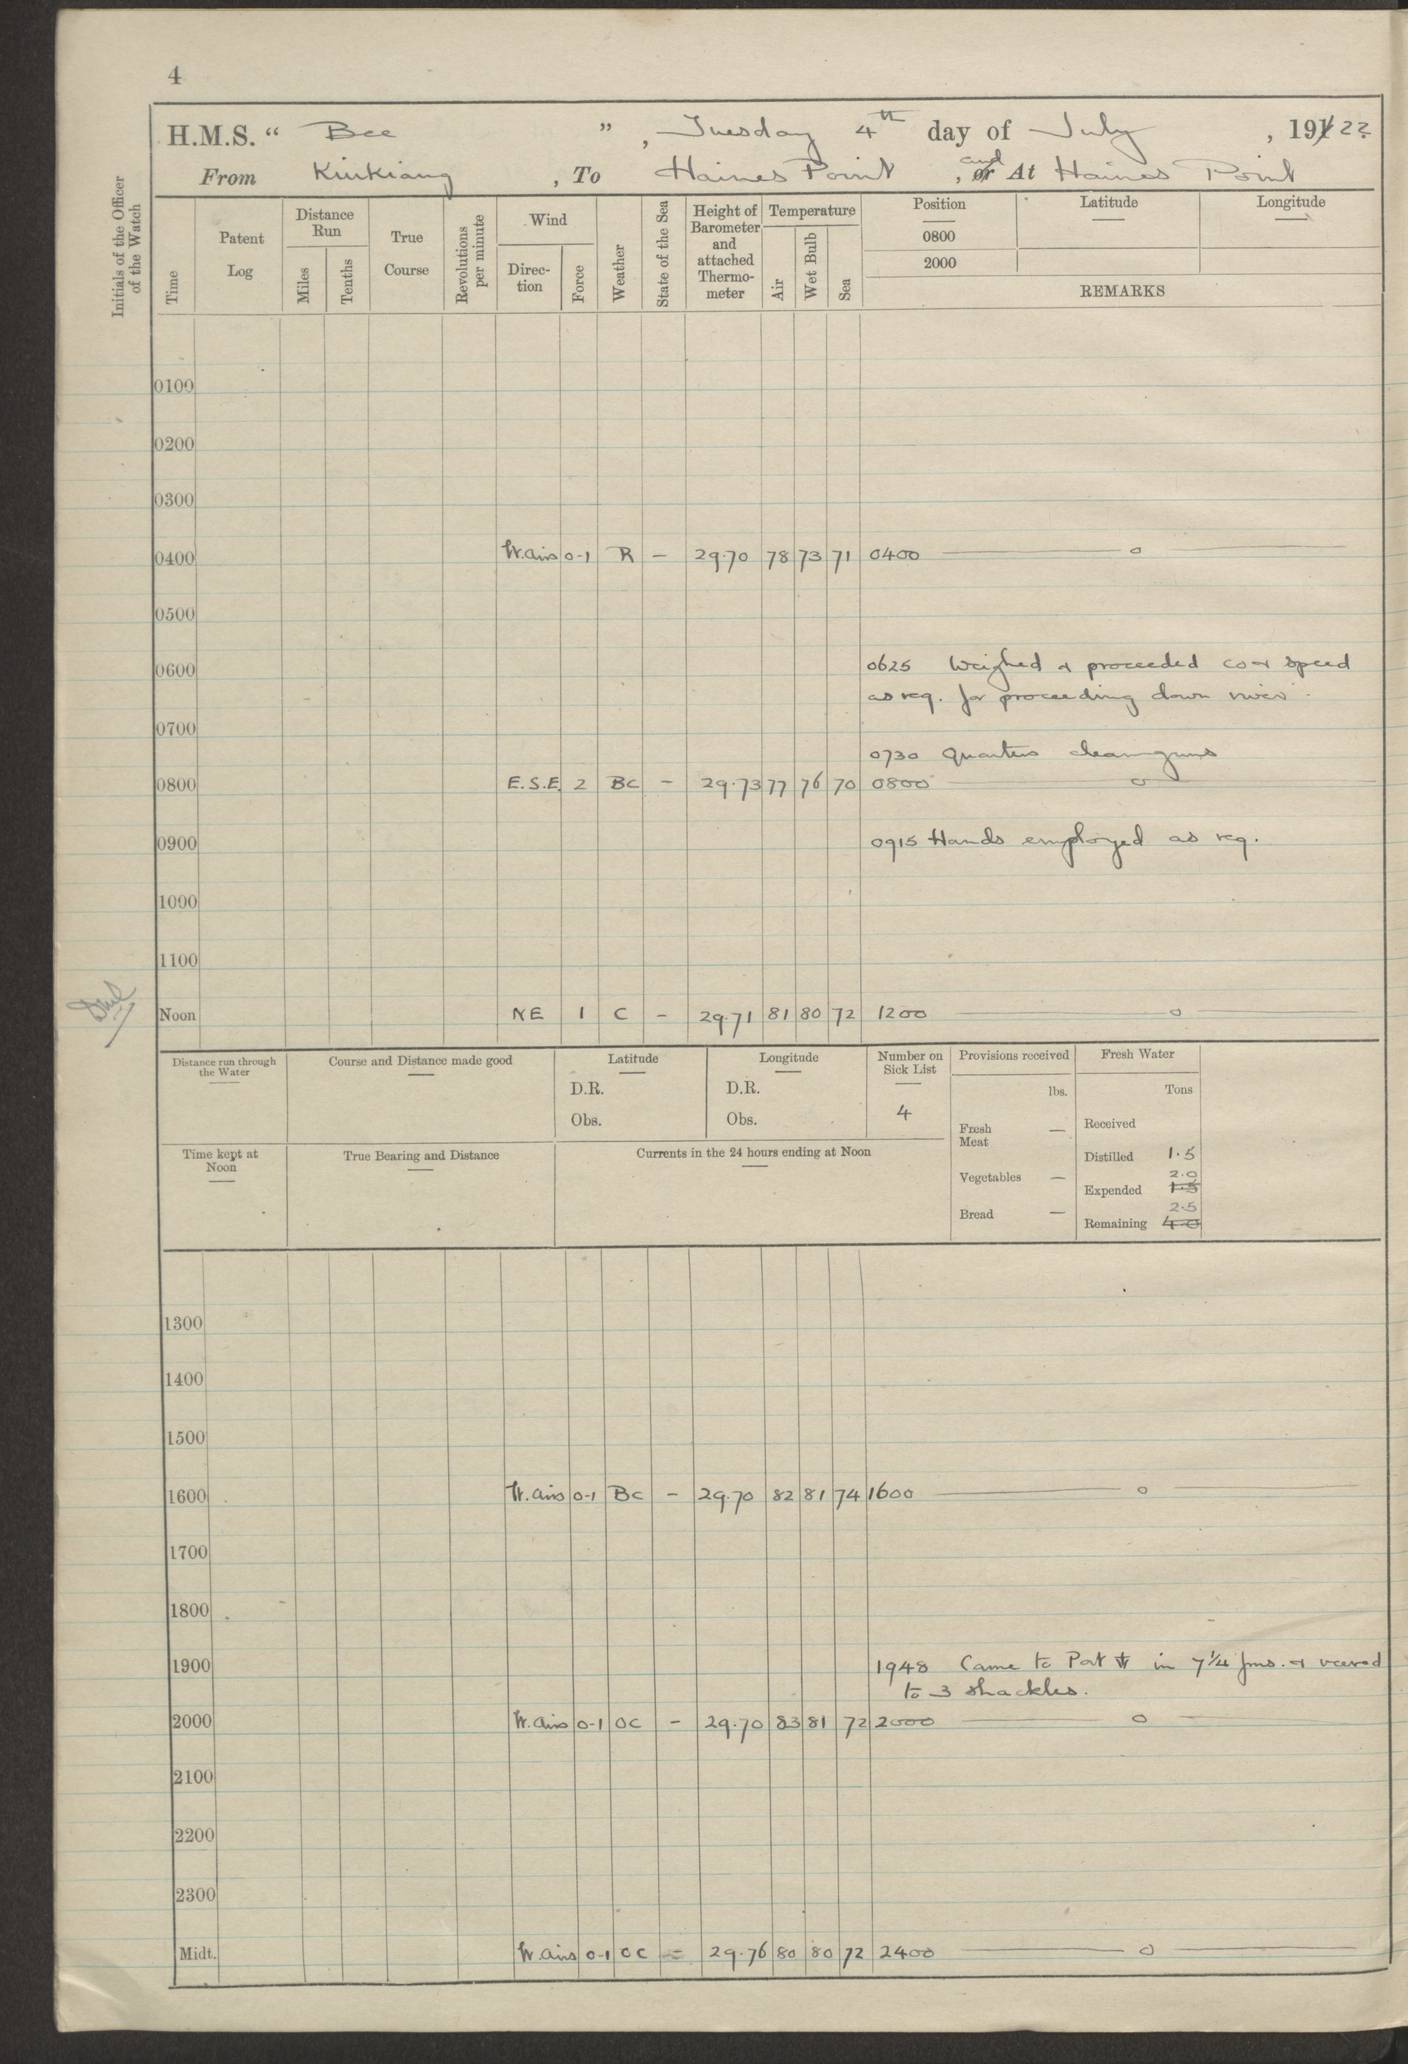 4
H.M.S. " Bee ", Tuesday 4th day of July, 1922
From Kiukiang, To Haines Point, and At Haines Point
Initials of the Officer of the Watch
Time
Patent Log
Distance Run
Miles
Tenths
True Course
Revolutions per minute
Wind
Direc-tion
Force
Weather
State of the Sea
Height of Barometer and attached Thermo-meter
Temperature
Air
Wet Bulb
Sea
Position
0800
2000
Latitude
Longitude
REMARKS
0100
0200
0300
0400 Vr. airs 0-1 R – 29.70 78 73 71 0400 — o —
0500
0600 0625 Weighed & proceeded co & speed
as req. for proceeding down river.
0700
0730 Quarters clean guns
0800 E.S.E. 2 BC – 29.73 77 76 70 0800 — o —
0900 0915 Hands employed as req.
1000
1100
Noon NE 1 C – 29.71 81 80 72 1200 — o —
Distance run through the Water
Course and Distance made good
Latitude
D.R.
Obs.
Longitude
D.R.
Obs.
Number on Sick List
4
Provisions received
lbs.
Fresh Meat –
Vegetables –
Bread –
Fresh Water
Tons
Received
Distilled 1.5
Expended 1.5 2.0
Remaining 4.0 2.5
Time kept at Noon
True Bearing and Distance
Currents in the 24 hours ending at Noon
1300
1400
1500
1600 Vr. airs 0-1 BC – 29.70 82 81 74 1600 — o —
1700
1800
1900 1948 Came to Port in 7¼ fms. & veered
to 3 shackles.
2000 Vr. airs 0-1 OC – 29.70 83 81 72 2000 — o —
2100
2200
2300
Midt. Vr. airs 0-1 OC = 29.76 80 80 72 2400 — o —